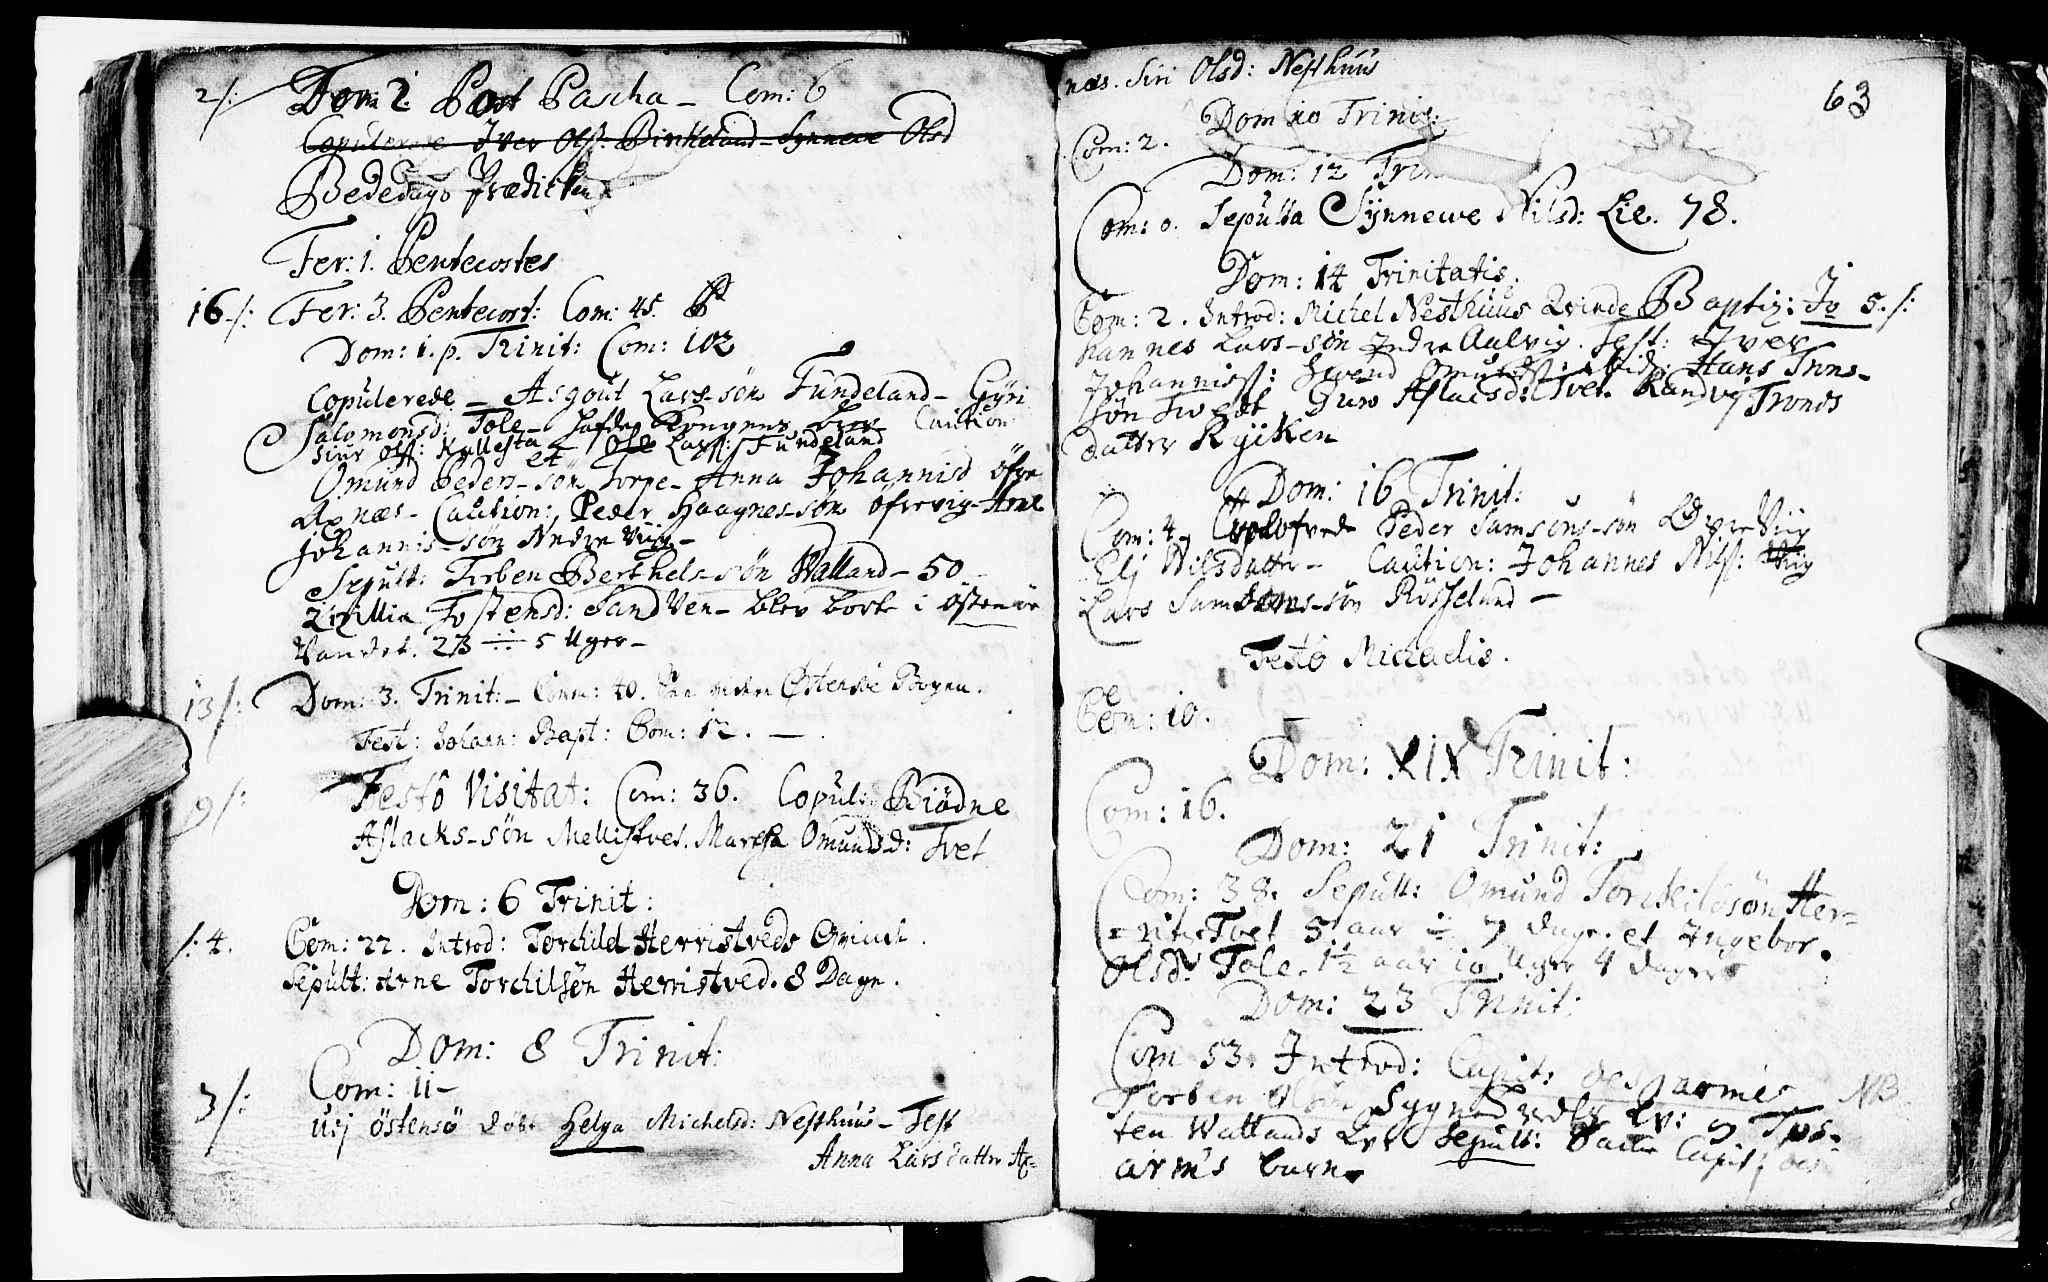 2/: Dom: 2. Post Pascha - Com: 6
Copulerede Iver Olss: Birkeland - Synneve Olsd
Bededags Prædicken
Fer: 1. Pentecostes
16/: Fer: 3. Pentecost: Com: 45.
Dom: 1. p. Trinit: Com: 102
Copulerede - Asgout Lars-søn Fundeland - Gyri
Salomonsd: Tole - Caution
Siur Olss: Kallesta Ole Larss: Fundeland
et
Omund Peders-søn Torpe - Anna Johannisd øfre
Axnæs - Caution: Peder Haagnes-søn øfrevig - Arne
Johannis-søn Nedre Viig -
Sepult: Torben Berthels-søn Walland - 50
Zizillia Tostensd: Sandven - blev borte i østensøe
Vandet. 23 ÷ 5 Uger -
13/: Dom: 3. Trinit: - Comm: 40. Østensøe Bogen.
Fest: Johann: Bapt: Com: 12. - .
9/: Festo Visitat: Com: 36. Copul: Biødne
Aslacks-søn Mellistvet. Martha Omundsd: Tvet
Dom: 6 Trinit:
/: 4. Com: 22. Introd: Torchild Herristveds Qvinde.
Sepult: Arne Torchilsøn Herristved. 8 Dage.
Dom: 8 Trinit:
3/: Com: 11 -
Udj østensø døbt Helga Michelsd: Nesthuus - Test
Anna Larsdatter Ax=
næs. Siri Olsd: Nesthuus
63
Dom 10 Trinit:
Com: 2.
Dom: 12 Trin
Com: 0. Sepulta Synnewe Nilsd: Lie. 78.
Dom: 14 Trinitatis.
Com: 2. Introd: Michel Nesthuus Qvinde Baptiz: Jo 5./:
hannes Lars-søn Indre Aalvig. Test: Iver
Johanniss: Svend Omundss: Hans Trons-
søn Tvedt, Guro Aslacsd: Tvet. Randvi Tronds
datter Rykken
Dom: 16 Trinit:
Com: 4. Peder Samsons-søn Øvre Viig
Elj Nilsdatter - Caution: Johannes Nilss: Viig
Lars Samsons-søn Røsseland -
Festo Michaelis.
Com: 10.
Dom: XIX Trinit:
Com: 16.
Dom: 21 Trinit:
Com: 38. Sepult: Omund Torckilssøn Her=
=ris Tvet 5 aar ÷ 7 dage. et Ingebor.
Olsd: Tole. 1½ aar 10 Uger 4 dager
Dom: 23 Trinit:
Com 53. Introd: Capit: armes NB.
Torben Sygnes Tos-
ten Wallands Qv: Sepult: Capit:
arms barn.